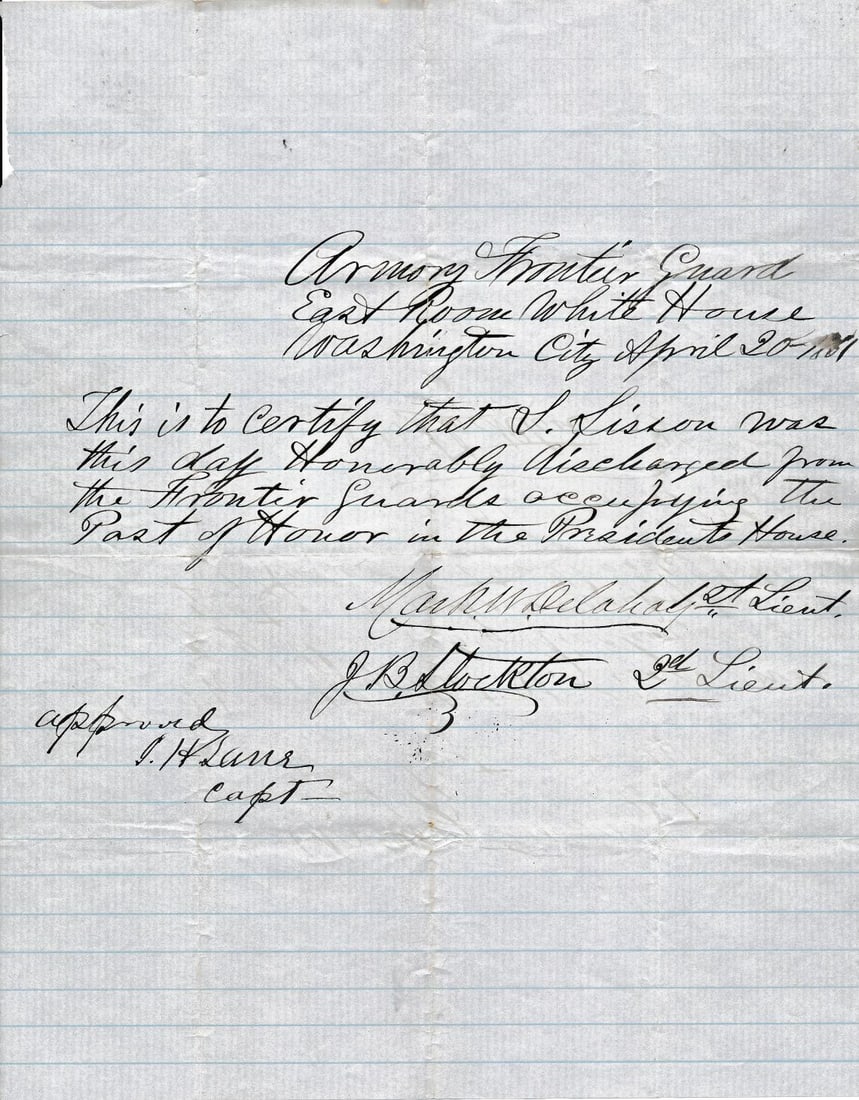 Armory Frontier Guard
East Room White House
Washington City April 20 1861
This is to certify that S. Sisson was
this day Honorably discharged from
the Frontier Guards occupying the
Post of Honor in the Presidents House.
Mark. W. Delahay 1st Lieut.
J. B. Stockton 2d Lieut.
approved
J. H Lane
Capt